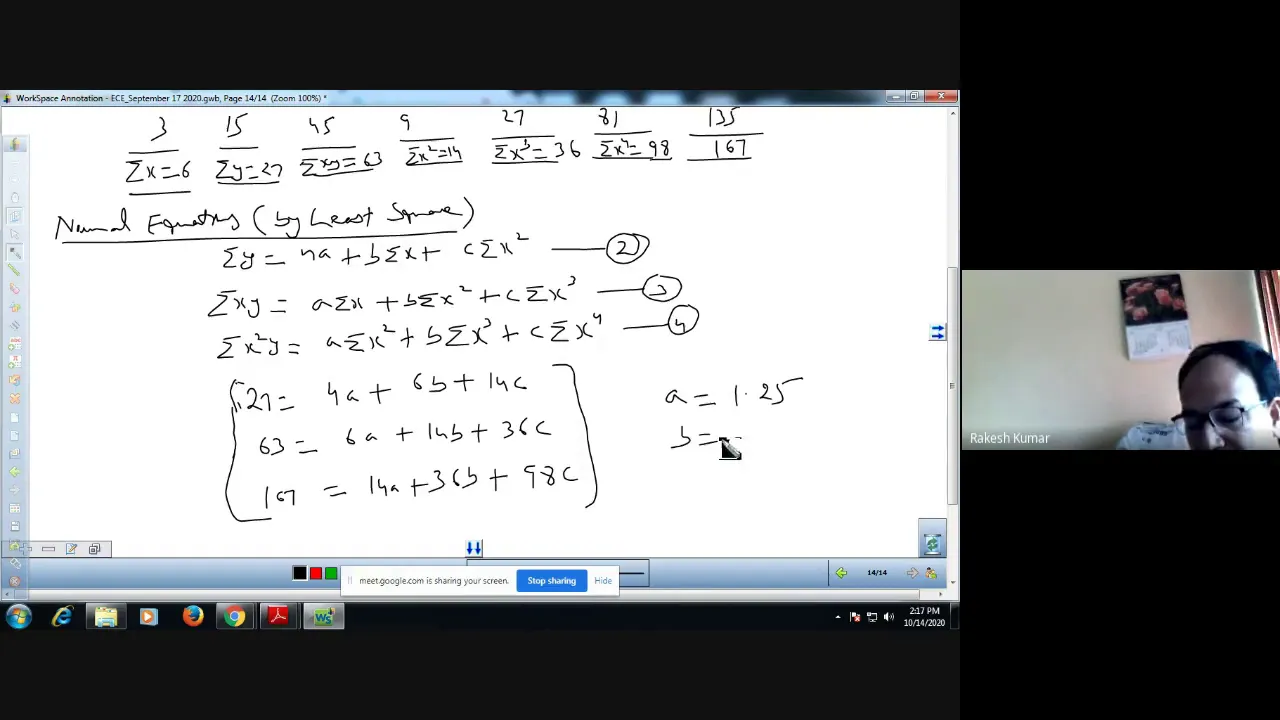 WorkSpace Annotation - ECE_September 17 2020.gwb, Page 14/14 (Zoom 100%) *
3 15 45 9 27 81 135
Σx=6 Σy=27 Σxy=63 Σx²=14 Σx³=36 Σx⁴=98 167
Normal Equations (by Least Square)
Σy = na + bΣx + cΣx² — 2
Σxy = aΣx + bΣx² + cΣx³ — 3
Σx²y = aΣx² + bΣx³ + cΣx⁴ — 4
27 = 4a + 6b + 14c
63 = 6a + 14b + 36c
167 = 14a + 36b + 98c
a = 1.25
b =
Rakesh Kumar
14/14
meet.google.com is sharing your screen. Stop sharing Hide
2:17 PM
10/14/2020